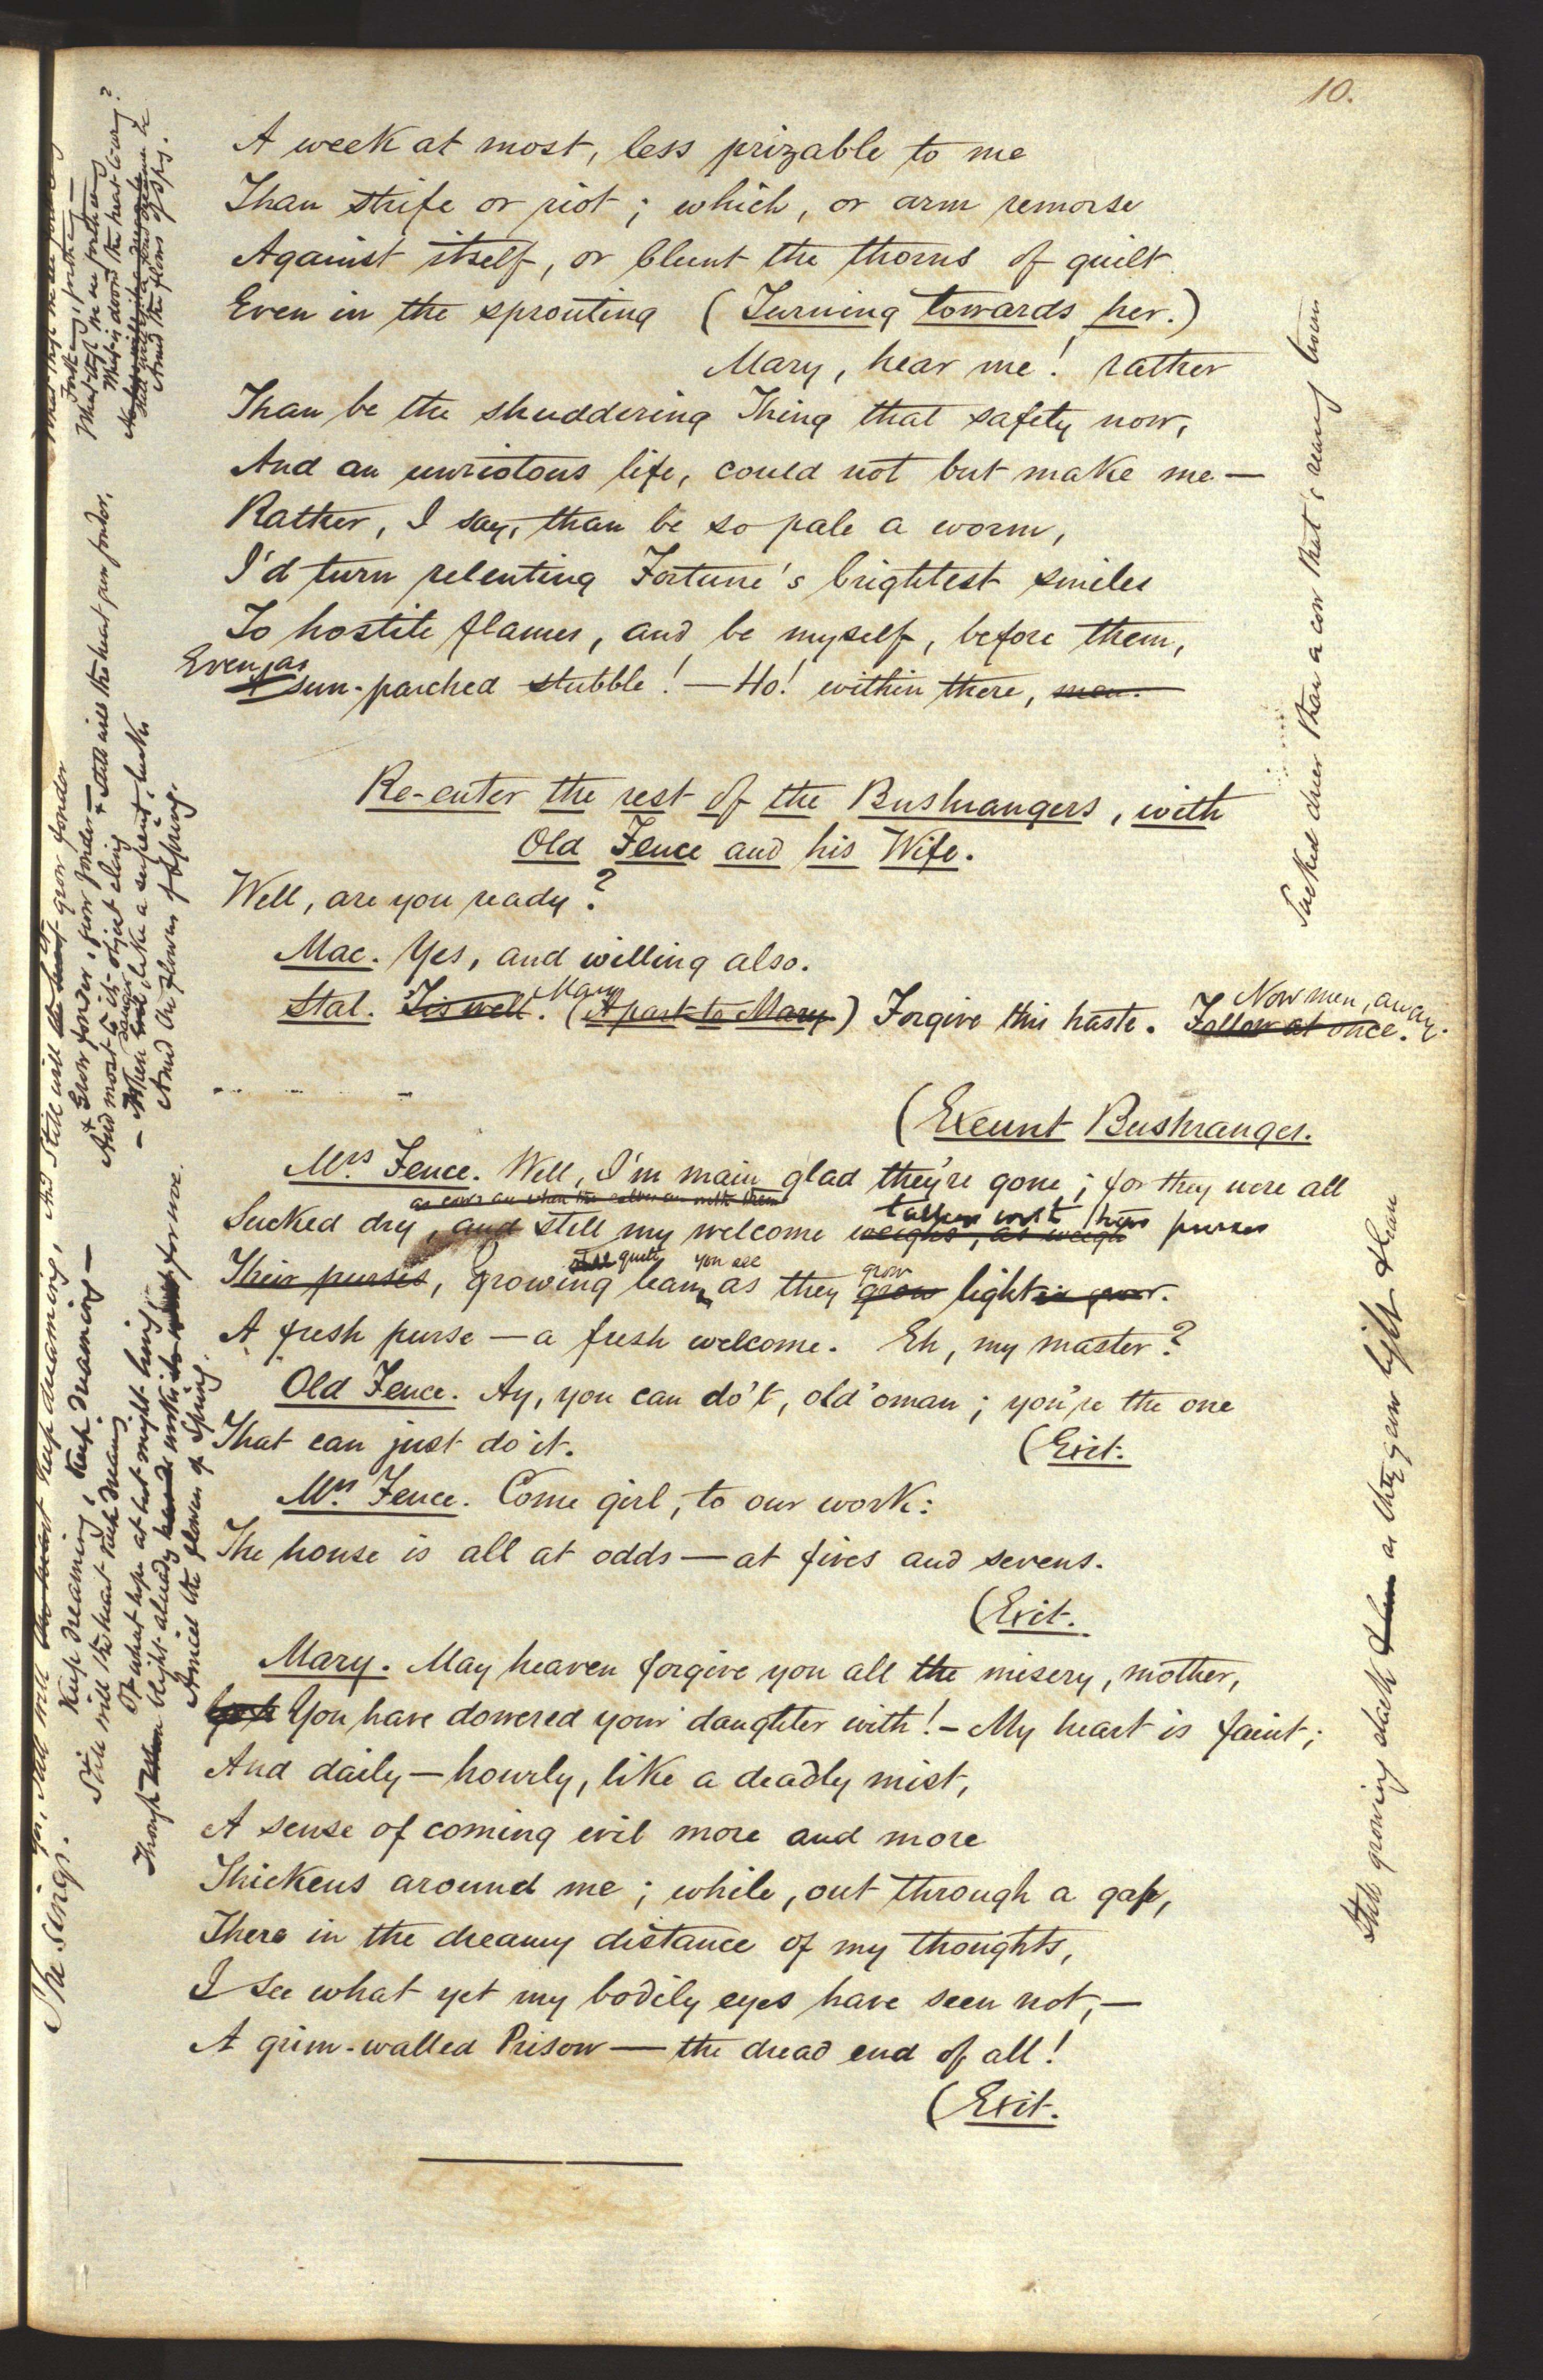 10.
A week at most, less prizable to me
Than strife or riot; which, or arm remorse
Against itself, or blunt the thorns of guilt
Even in the sprouting (Turning towards her.)
Mary, hear me! rather
Than be the shuddering Thing that safety now,
And an unriotous life, could not but make me—
Rather, I say, than be so pale a worm,
I'd turn relenting Fortune's brightest smiles
To hostile flames, and be myself, before them,
Even as
sun-parched stubble!—Ho! within there, men.
Re-enter the rest of the Bushrangers, with
Old Fence and his Wife.
Well, are you ready?
Mac. Yes, and willing also.
Mary
Now men, away.
Stal. 'Tis well. (Apart to Mary) Forgive this haste. Follow at once.
(Exeunt Bushranger.
Mrs Fence. Well, I'm main glad they're gone; for they were all
as cows are when the calves are with them
Sucked dry, and still my welcome weighs, as weigh purses
still quite you see grow
Their purses, Growing lean, as they grow light
A fresh purse—a fresh welcome. Eh, my master?
Old Fence. Ay, you can do't, old 'oman; you're the one
That can just do it. (Exit.
Mrs. Fence. Come girl, to our work:
The house is all at odds—at fives and sevens.
(Exit.
Mary. May heaven forgive you all the misery, mother,
You have dowered your daughter with!—My heart is faint;
And daily—hourly, like a deadly mist,
A sense of coming evil more and more
Thickens around me; while, out through a gap,
There in the dreamy distance of my thoughts,
I see what yet my bodily eyes have seen not,—
A grim-walled Prison—the dread end of all!
(Exit.
She sings.
Yes, still will the heart keep dreaming,
Keep dreaming, keep dreaming—
Still will the heart keep dreams
Of what hope at last might bring
Though blight already works for woe
Amid the flowers of Spring.
And still will the heart grow fonder
Grow fonder, grow fonder—
And most to its object cling
When danger, like a serpent, lurks
Amid the flowers of Spring.
& still will the heart pure ponder,
What is doom'd the heart to wring?
Amid the flowers of Spg.
Sucked drier than a cow that's
Still growing slack as they grow light & lean